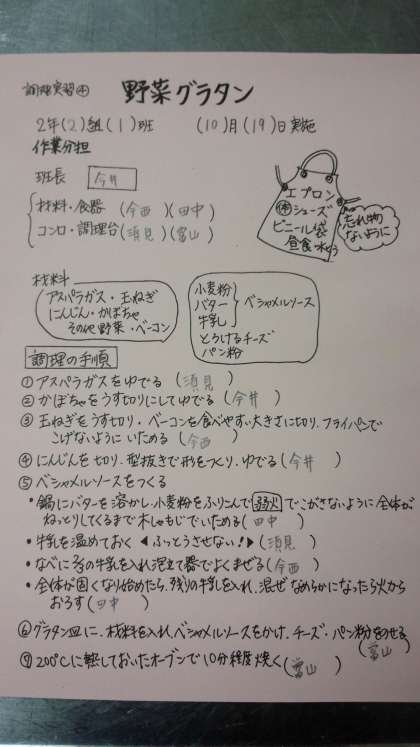 調理実習④ 野菜グラタン
2年(2)組(1)班 (10)月(19)日実施
作業分担
班長 今井
材料・食器 (今西)(田中)
コンロ・調理台(須見)(富山)
エプロン
体シューズ
ビニール袋
昼食・水とう
忘れ物
ないように
材料
アスパラガス・玉ねぎ
にんじん・かぼちゃ
その他 野菜・ベーコン
小麦粉
バター
牛乳
ベシャメルソース
とうけるチーズ
パン粉
調理の手順
①アスパラガスをゆでる (須見)
②かぼちゃをうす切りにしてゆでる (今井)
③玉ねぎをうす切り・ベーコンを食べやすい大きさに切り、フライパンで
こげないようにいためる (今西)
④にんじんを切り、型抜きで形をつくり、ゆでる (今井)
⑤ベシャメルソースをつくる
・鍋にバターを溶かし、小麦粉をふりこんで弱火でこがさないように全体が
ねっとりしてくるまで木しゃもじでいためる (田中)
・牛乳を温めておく ◀ふっとうさせない!▶ (須見)
・なべに の牛乳を入れ泡立て器でよくまぜる (今西)
・全体が固くなり始めたら、残りの牛乳を入れ、混ぜなめらかになったら火から
おろす (田中)
⑥グラタン皿に、材料を入れ、ベシャメルソースをかけ、チーズ・パン粉をのせる
(富山)
⑦200℃に熱しておいたオーブンで10分程度焼く (富山)